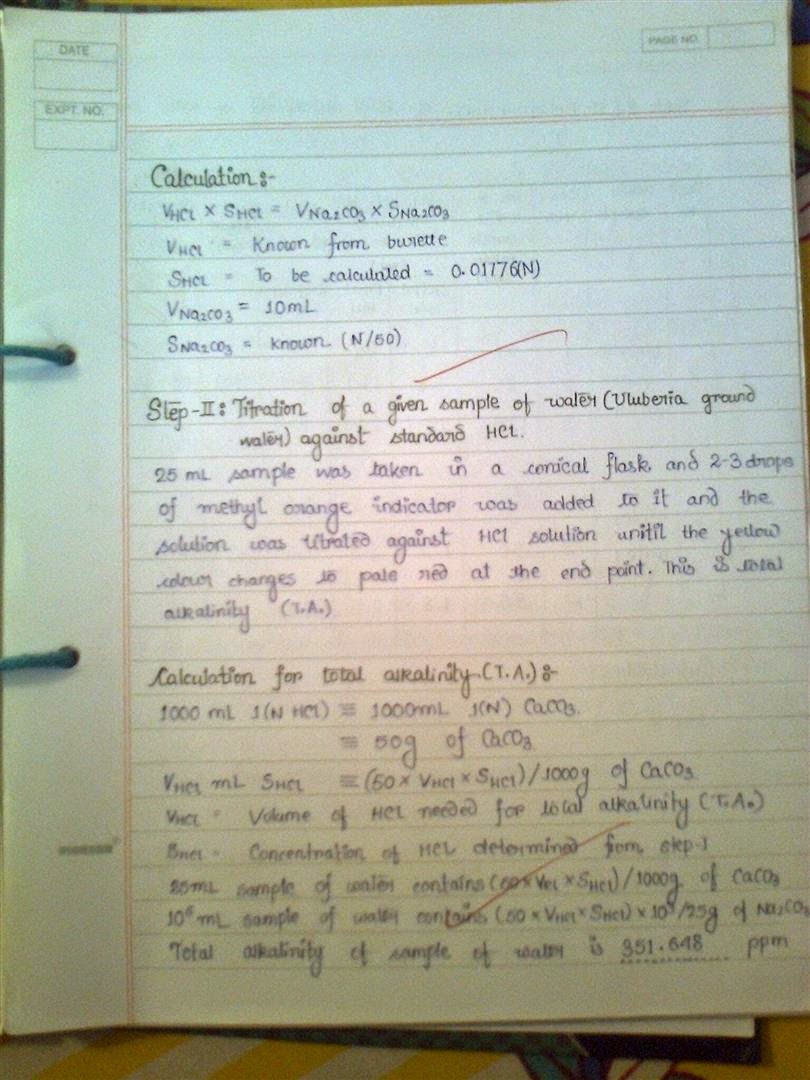 DATE
PAGE NO.
EXPT. NO.
Calculation :-
VHCl × SHCl = VNa2CO3 × SNa2CO3
VHCl = Known from burette
SHCl = To be calculated = 0.01776(N)
VNa2CO3 = 10mL
SNa2CO3 = known. (N/50)
Step-II: Titration of a given sample of water (Uluberia ground
water) against standard HCl.
25 mL sample was taken in a conical flask and 2-3 drops
of methyl orange indicator was added to it and the
solution was titrated against HCl solution unitil the yellow
colour changes to pale red at the end point. This is total
alkalinity (T.A.)
Calculation for total alkalinity.(T.A.) :-
1000 mL 1(N HCl) ≡ 1000mL 1(N) CaCO3.
≡ 50g of CaCO3
VHCl mL SHCl ≡ (50 × VHCl × SHCl)/1000g of CaCO3
VHCl = Volume of HCl needed for total alkalinity (T.A.)
SHCl = Concentration of HCl determined from step-I
25mL sample of water contains (50 × VHCl × SHCl)/1000g of CaCO3
10⁶ mL sample of water contains (50 × VHCl × SHCl) × 10⁶/25g of Na2CO3
Total alkalinity of sample of water is 351.648 ppm